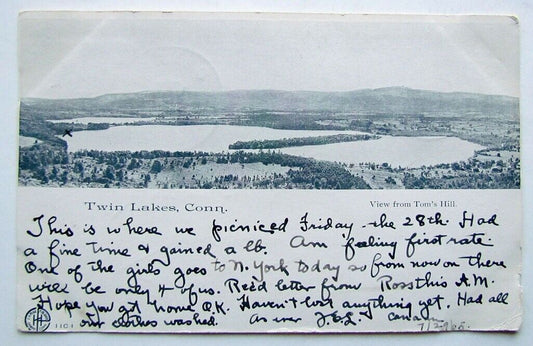 Twin Lakes, Conn.
View from Tom's Hill.
This is where we picniced Friday the 28th. Had
a fine time & gained a lb. Am feeling first rate.
One of the girls goes to N. York today so from now on there
will be only 4 of us. Rec'd letter from Ross this A.M.
Hope you got home O.K. Haven't lost anything yet. Had all
our clothes washed. As ever
11C1